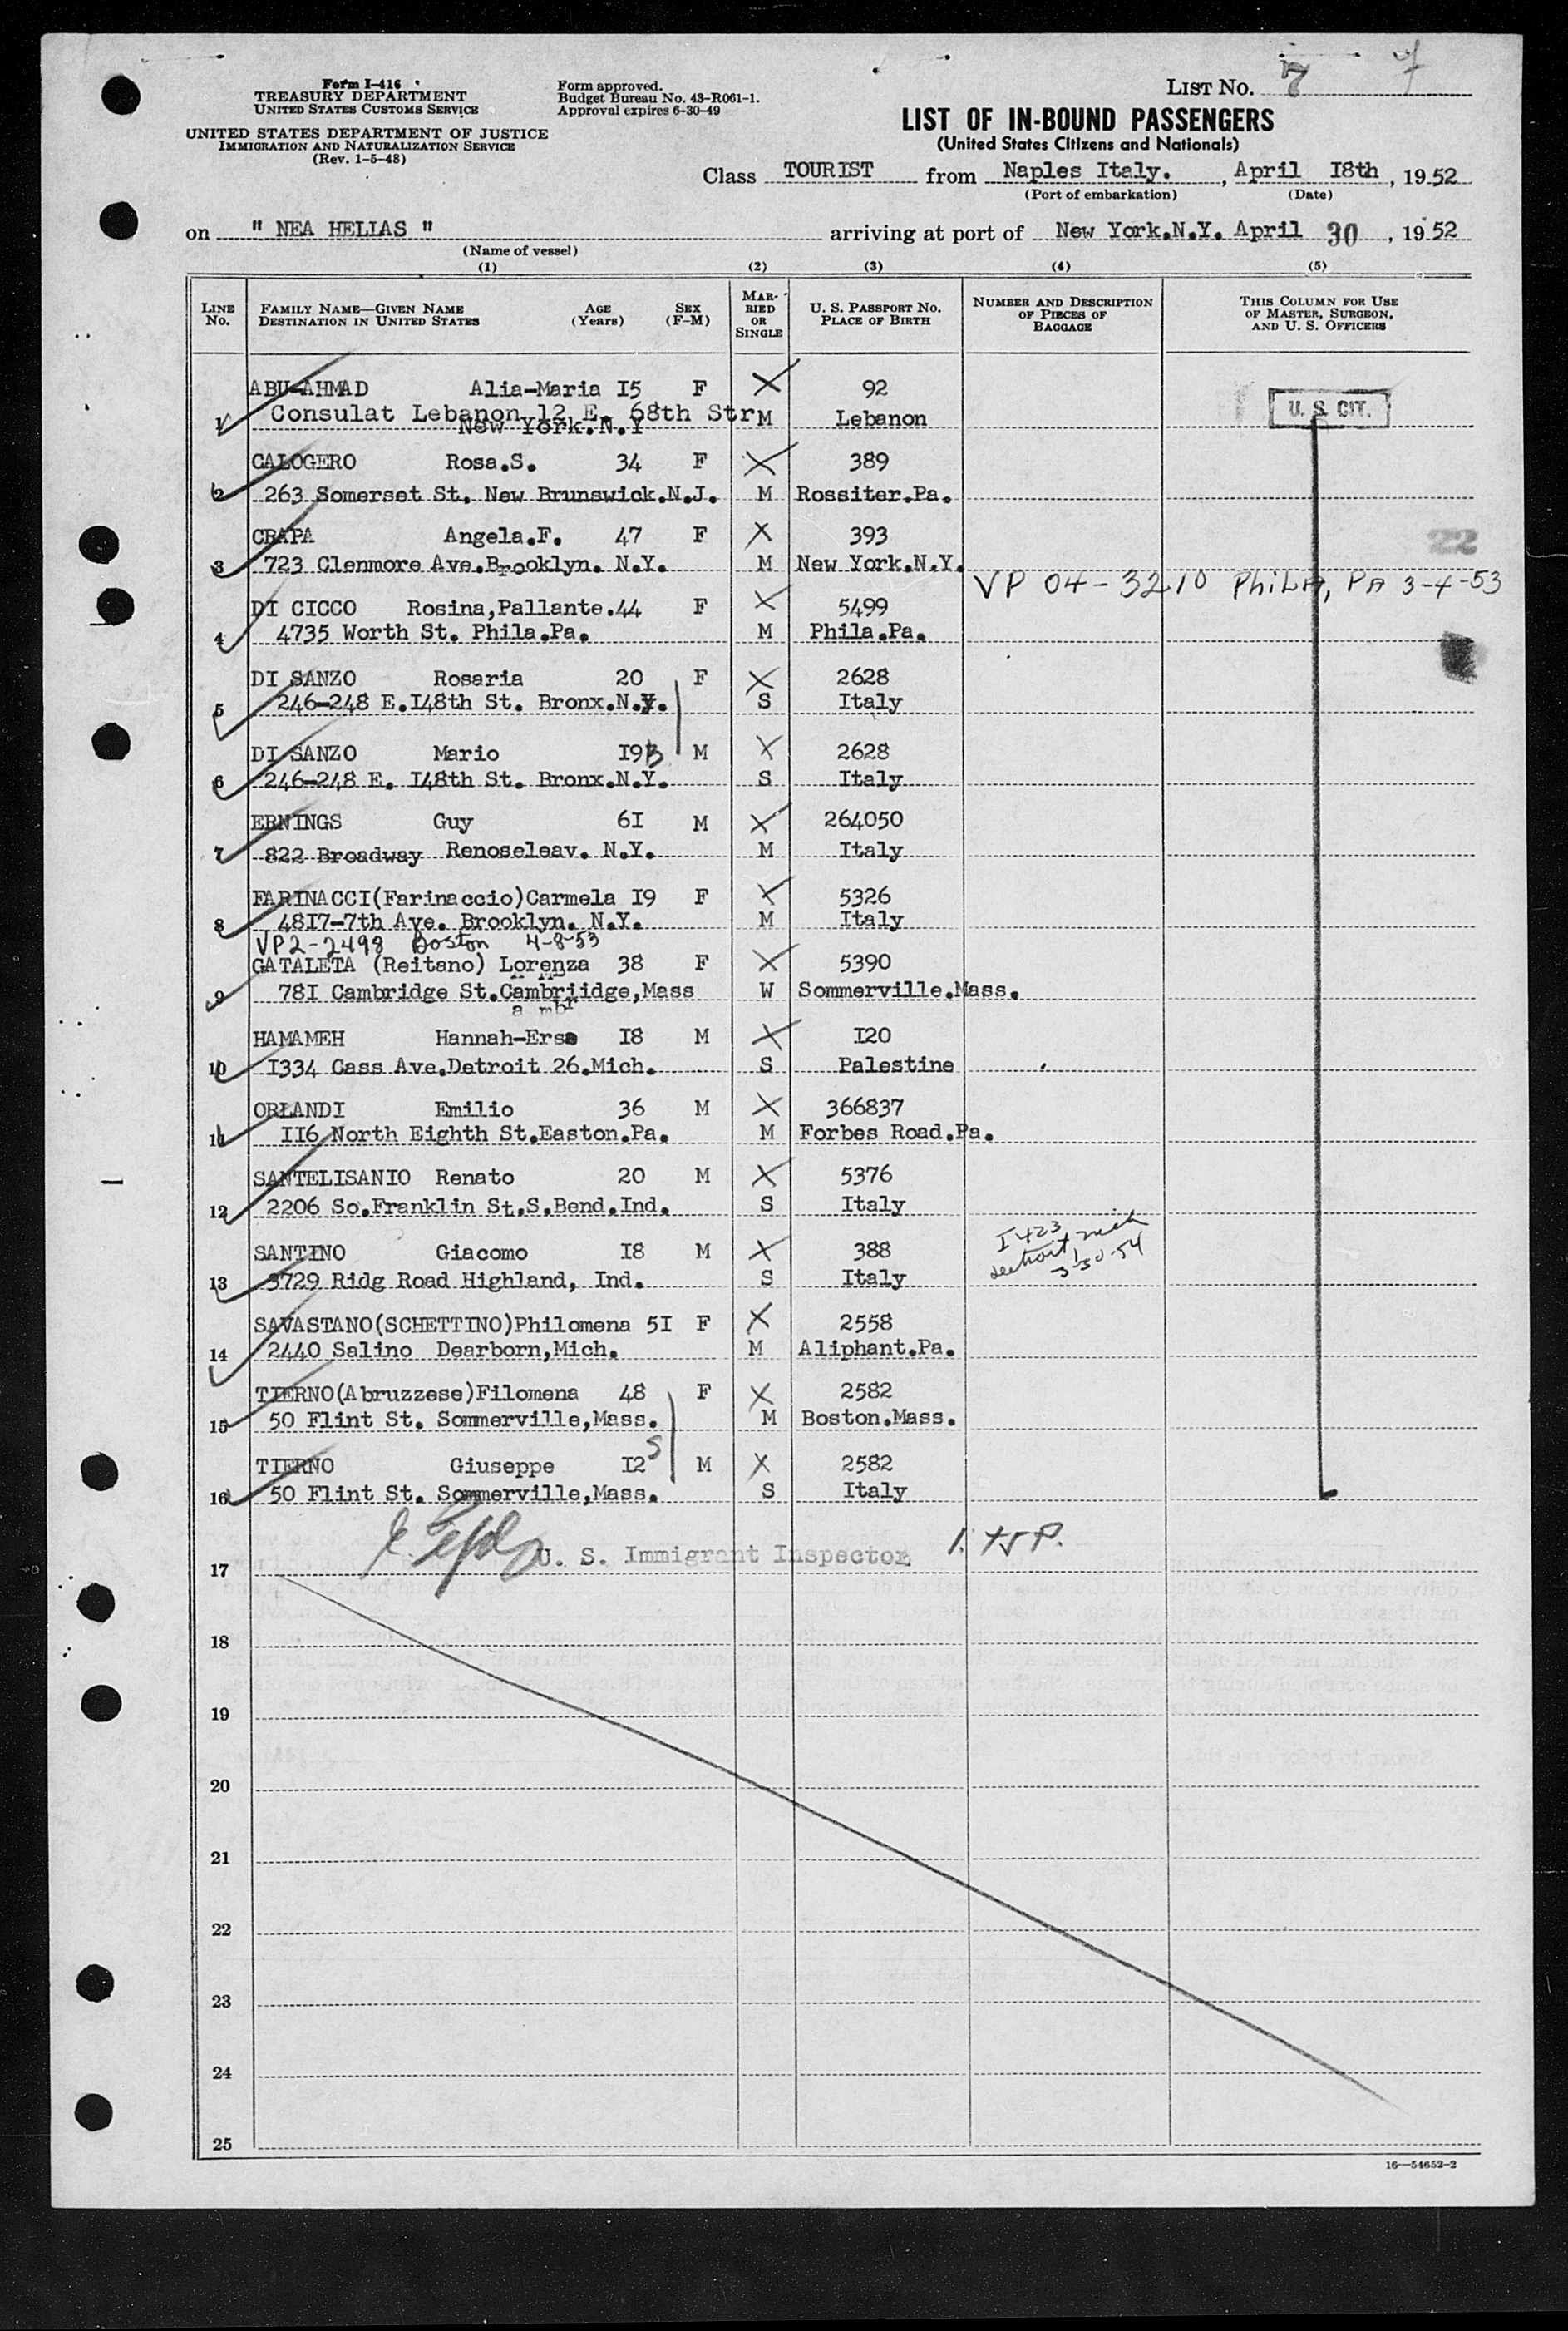 Form I-416
TREASURY DEPARTMENT
UNITED STATES CUSTOMS SERVICE
UNITED STATES DEPARTMENT OF JUSTICE
IMMIGRATION AND NATURALIZATION SERVICE
(Rev. 1-5-48)
Form approved.
Budget Bureau No. 43-R061-1.
Approval expires 6-30-49
LIST NO. 7 7
LIST OF IN-BOUND PASSENGERS
(United States Citizens and Nationals)
Class TOURIST from Naples Italy. , April I8th , 19 52
(Port of embarkation) (Date)
on " NEA HELIAS " arriving at port of New York.N.Y. April 30 , 19 52
(Name of vessel)
(1) (2) (3) (4) (5)
LINE NO. FAMILY NAME—GIVEN NAME DESTINATION IN UNITED STATES AGE (Years) SEX (F-M) MARRIED OR SINGLE U. S. PASSPORT NO. PLACE OF BIRTH NUMBER AND DESCRIPTION OF PIECES OF BAGGAGE THIS COLUMN FOR USE OF MASTER, SURGEON, AND U. S. OFFICERS
ABU-AHMAD Alia-Maria I5 F X 92
1 Consulat Lebanon 12 E. 68th Str M Lebanon U. S. CIT.
New York.N.Y
CALOGERO Rosa.S. 34 F X 389
2 263 Somerset St. New Brunswick.N.J. M Rossiter.Pa.
CRAPA Angela.F. 47 F X 393 22
3 723 Clenmore Ave.Brooklyn. N.Y. M New York.N.Y.
VP 04-3210 PhiLA, PA 3-4-53
DI CICCO Rosina,Pallante.44 F X 5499
4 4735 Worth St. Phila.Pa. M Phila.Pa.
DI SANZO Rosaria 20 F X 2628
5 246-248 E.I48th St. Bronx.N.Y. S Italy
DI SANZO Mario I9 B M X 2628
6 246-248 E. I48th St. Bronx.N.Y. S Italy
ERNINGS Guy 6I M X 264050
7 822 Broadway Renoseleav. N.Y. M Italy
FARINACCI(Farinaccio)Carmela I9 F X 5326
8 48I7-7th Ave. Brooklyn. N.Y. M Italy
VP2-2498 Boston 4-8-53
GATALETA (Reitano) Lorenza 38 F X 5390
9 78I Cambridge St.Cambriidge,Mass W Sommerville.Mass.
a mbr
HAMAMEH Hannah-Ersa I8 M X I20
10 I334 Cass Ave.Detroit 26.Mich. S Palestine
ORLANDI Emilio 36 M X 366837
11 II6 North Eighth St.Easton.Pa. M Forbes Road.Pa.
SANTELISANIO Renato 20 M X 5376
12 2206 So.Franklin St.S.Bend.Ind. S Italy
I 423
SANTINO Giacomo I8 M X 388
detroit mich
3-30-54
13 3729 Ridg Road Highland, Ind. S Italy
SAVASTANO(SCHETTINO)Philomena 5I F X 2558
14 2440 Salino Dearborn,Mich. M Aliphant.Pa.
TIERNO(Abruzzese)Filomena 48 F X 2582
15 50 Flint St. Sommerville,Mass. M Boston.Mass.
S
TIERNO Giuseppe I2 M X 2582
16 50 Flint St. Sommerville,Mass. S Italy
U. S. Immigrant Inspector
17
18
19
20
21
22
23
24
25
16—54652-2